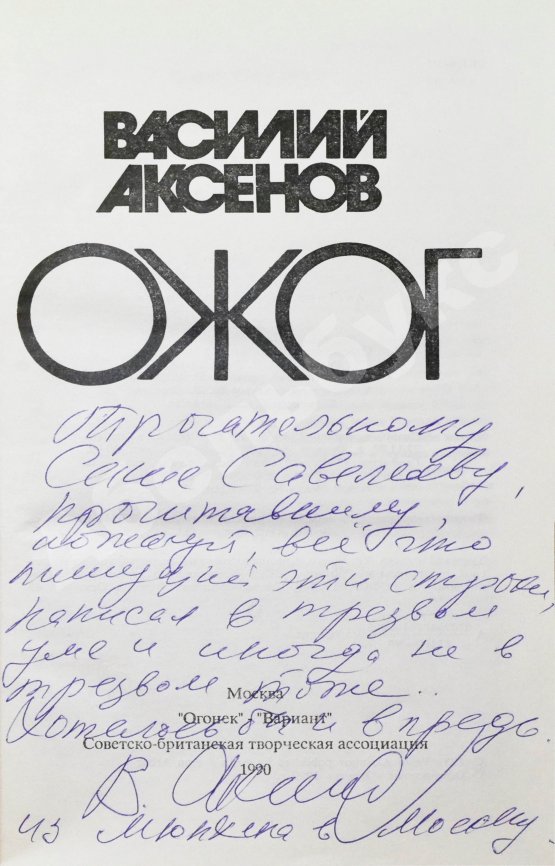 ВАСИЛИЙ
АКСЕНОВ
ОЖОГ
Трогательному
Савельеву,
прочитавшему,
пожалуй, всё что
пишущий эти строки,
написал в трезвом
уме и иногда не в
трезвом тоже..
Москва
"Огонек" - "Вариант"
Хотелось бы и впредь.
Советско-британская творческая ассоциация
1990
В. Аксенов
из Мюнхена в Москву